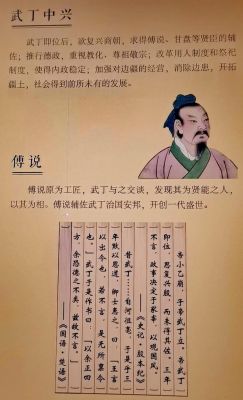 武丁中兴
武丁即位后，欲复兴商朝，求得傅说、甘盘等贤臣的辅
佐；推行德政，重视教化、尊祖敬宗；改革用人制度和祭祀
制度，使得内政稳定；加强对边疆的经营，消除边患，开拓
疆土，社会得到前所未有的发展。
傅说
傅说原为工匠，武丁与之交谈，发现其为贤能之人，
以其为相。傅说辅佐武丁治国安邦，开创一代盛世。
帝小乙崩，子帝武丁立。帝武丁
即位，思复兴殷，而未得其佐。三年
不言，政事决定于冢宰，以观国风。
——《史记·殷本纪》
昔武丁……自河徂亳，于是乎三
年默以思道。卿士患之，曰：“王言
以出令也，若不言，是无所禀令
也。”武丁于是作书曰：“以余正四
方，余恐德之不类，兹故不言。”
——《国语·楚语》